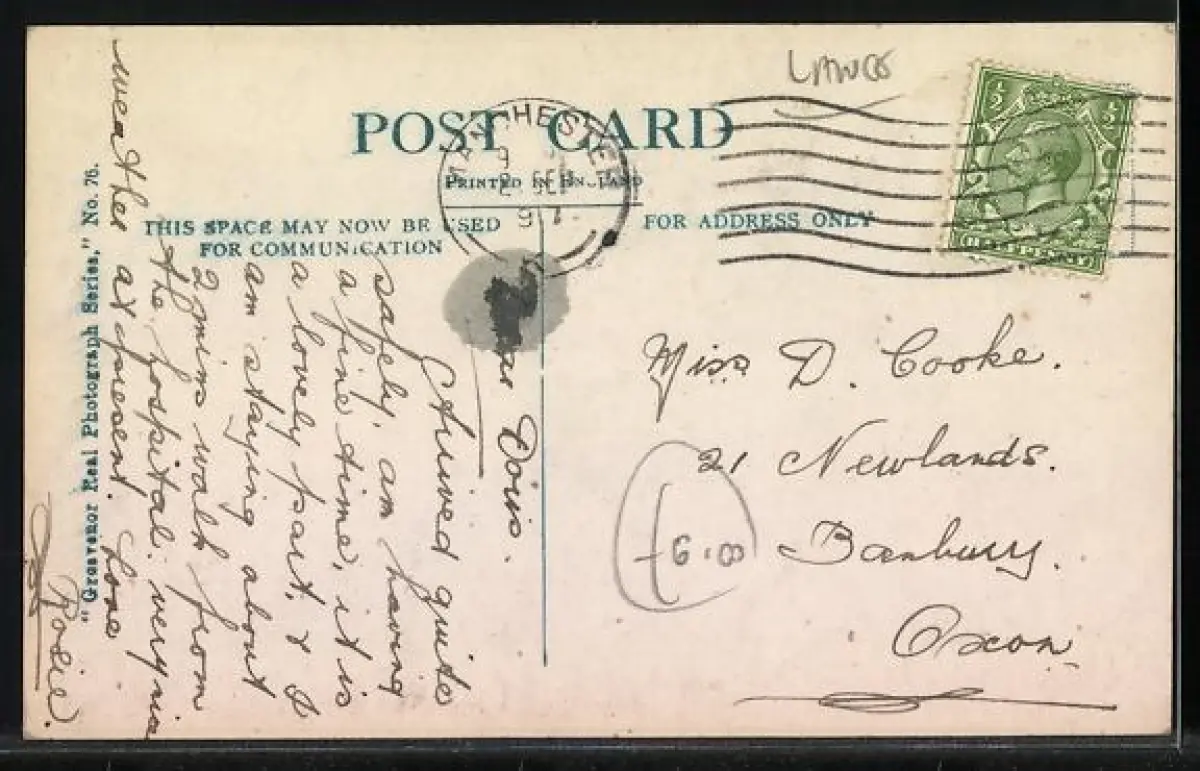 LANCS
POST CARD
MANCHESTER
PRINTED IN ENGLAND
THIS SPACE MAY NOW BE USED
FOR COMMUNICATION
FOR ADDRESS ONLY
½ ½
HALFPENNY
"Grosvenor Real Photograph Series," No. 76.
Doris.
Arrived quite
safely, am having
a fine time, it is
a lovely part, & I
am staying about
2 mins walk from
the hospital. very nice
weather at present. Love
Rosie.
Miss D. Cooke.
21 Newlands.
Banbury.
Oxon